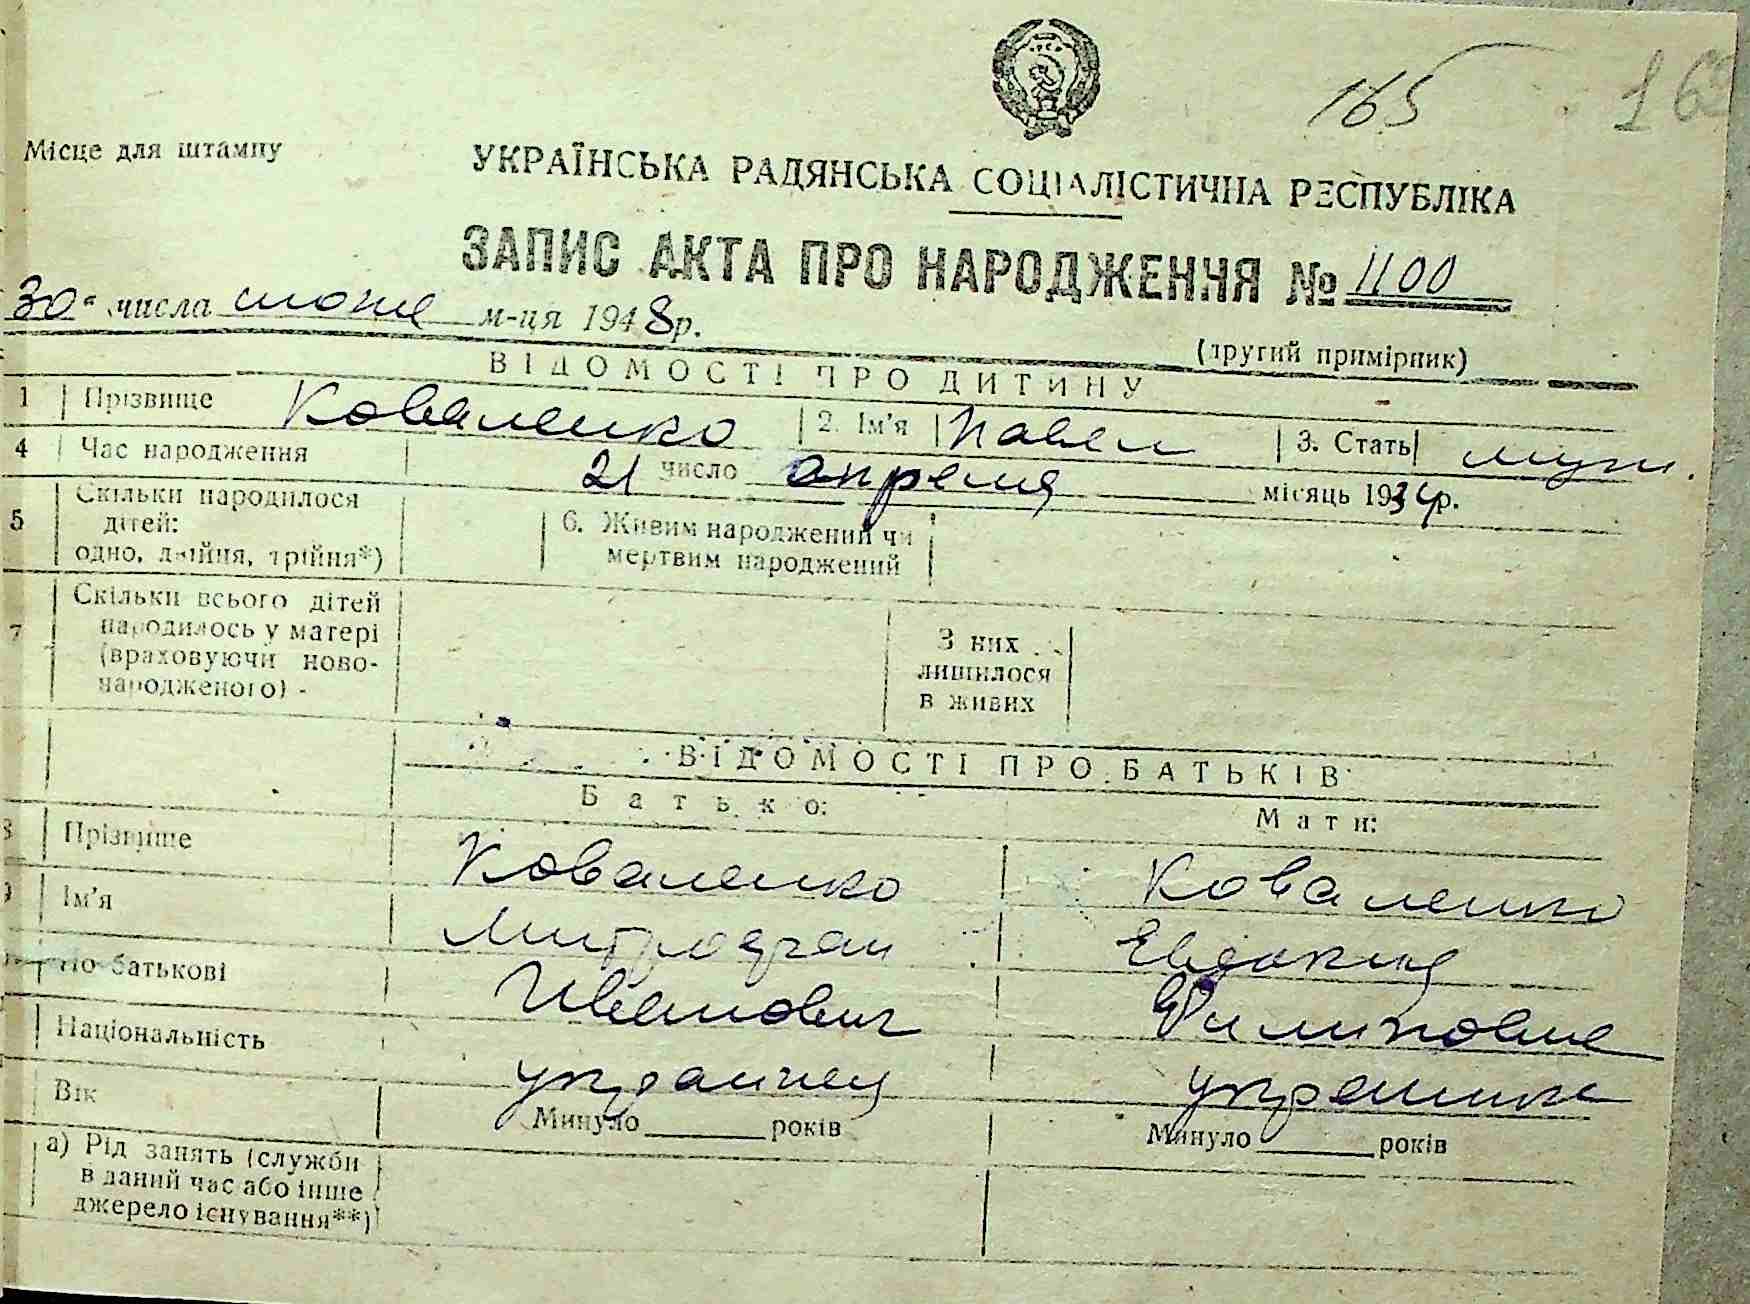 165 16
Місце для штампу
УКРАЇНСЬКА РАДЯНСЬКА СОЦІАЛІСТИЧНА РЕСПУБЛІКА
ЗАПИС АКТА ПРО НАРОДЖЕННЯ № 1100
30 числа июня м-ця 1948 р.
(другий примірник)
ВІДОМОСТІ ПРО ДИТИНУ
1 Прізвище Коваленко 2. Ім'я Павел 3. Стать муж.
4 Час народження 21 число апреля місяць 1934 р.
5 Скільки народилося дітей: одно, двійня, трійня*) 6. Живим народжений чи мертвим народжений
7 Скільки всього дітей народилось у матері (враховуючи новонародженого) - З них лишилося в живих
ВІДОМОСТІ ПРО БАТЬКІВ
Батько: Мати:
8 Прізвище Коваленко Коваленко
9 Ім'я Митрофан Евдокия
По батькові Иванович Филиповна
Національність украинец украинка
Вік Минуло років Минуло років
а) Рід занять (служби в даний час або інше джерело існування**)